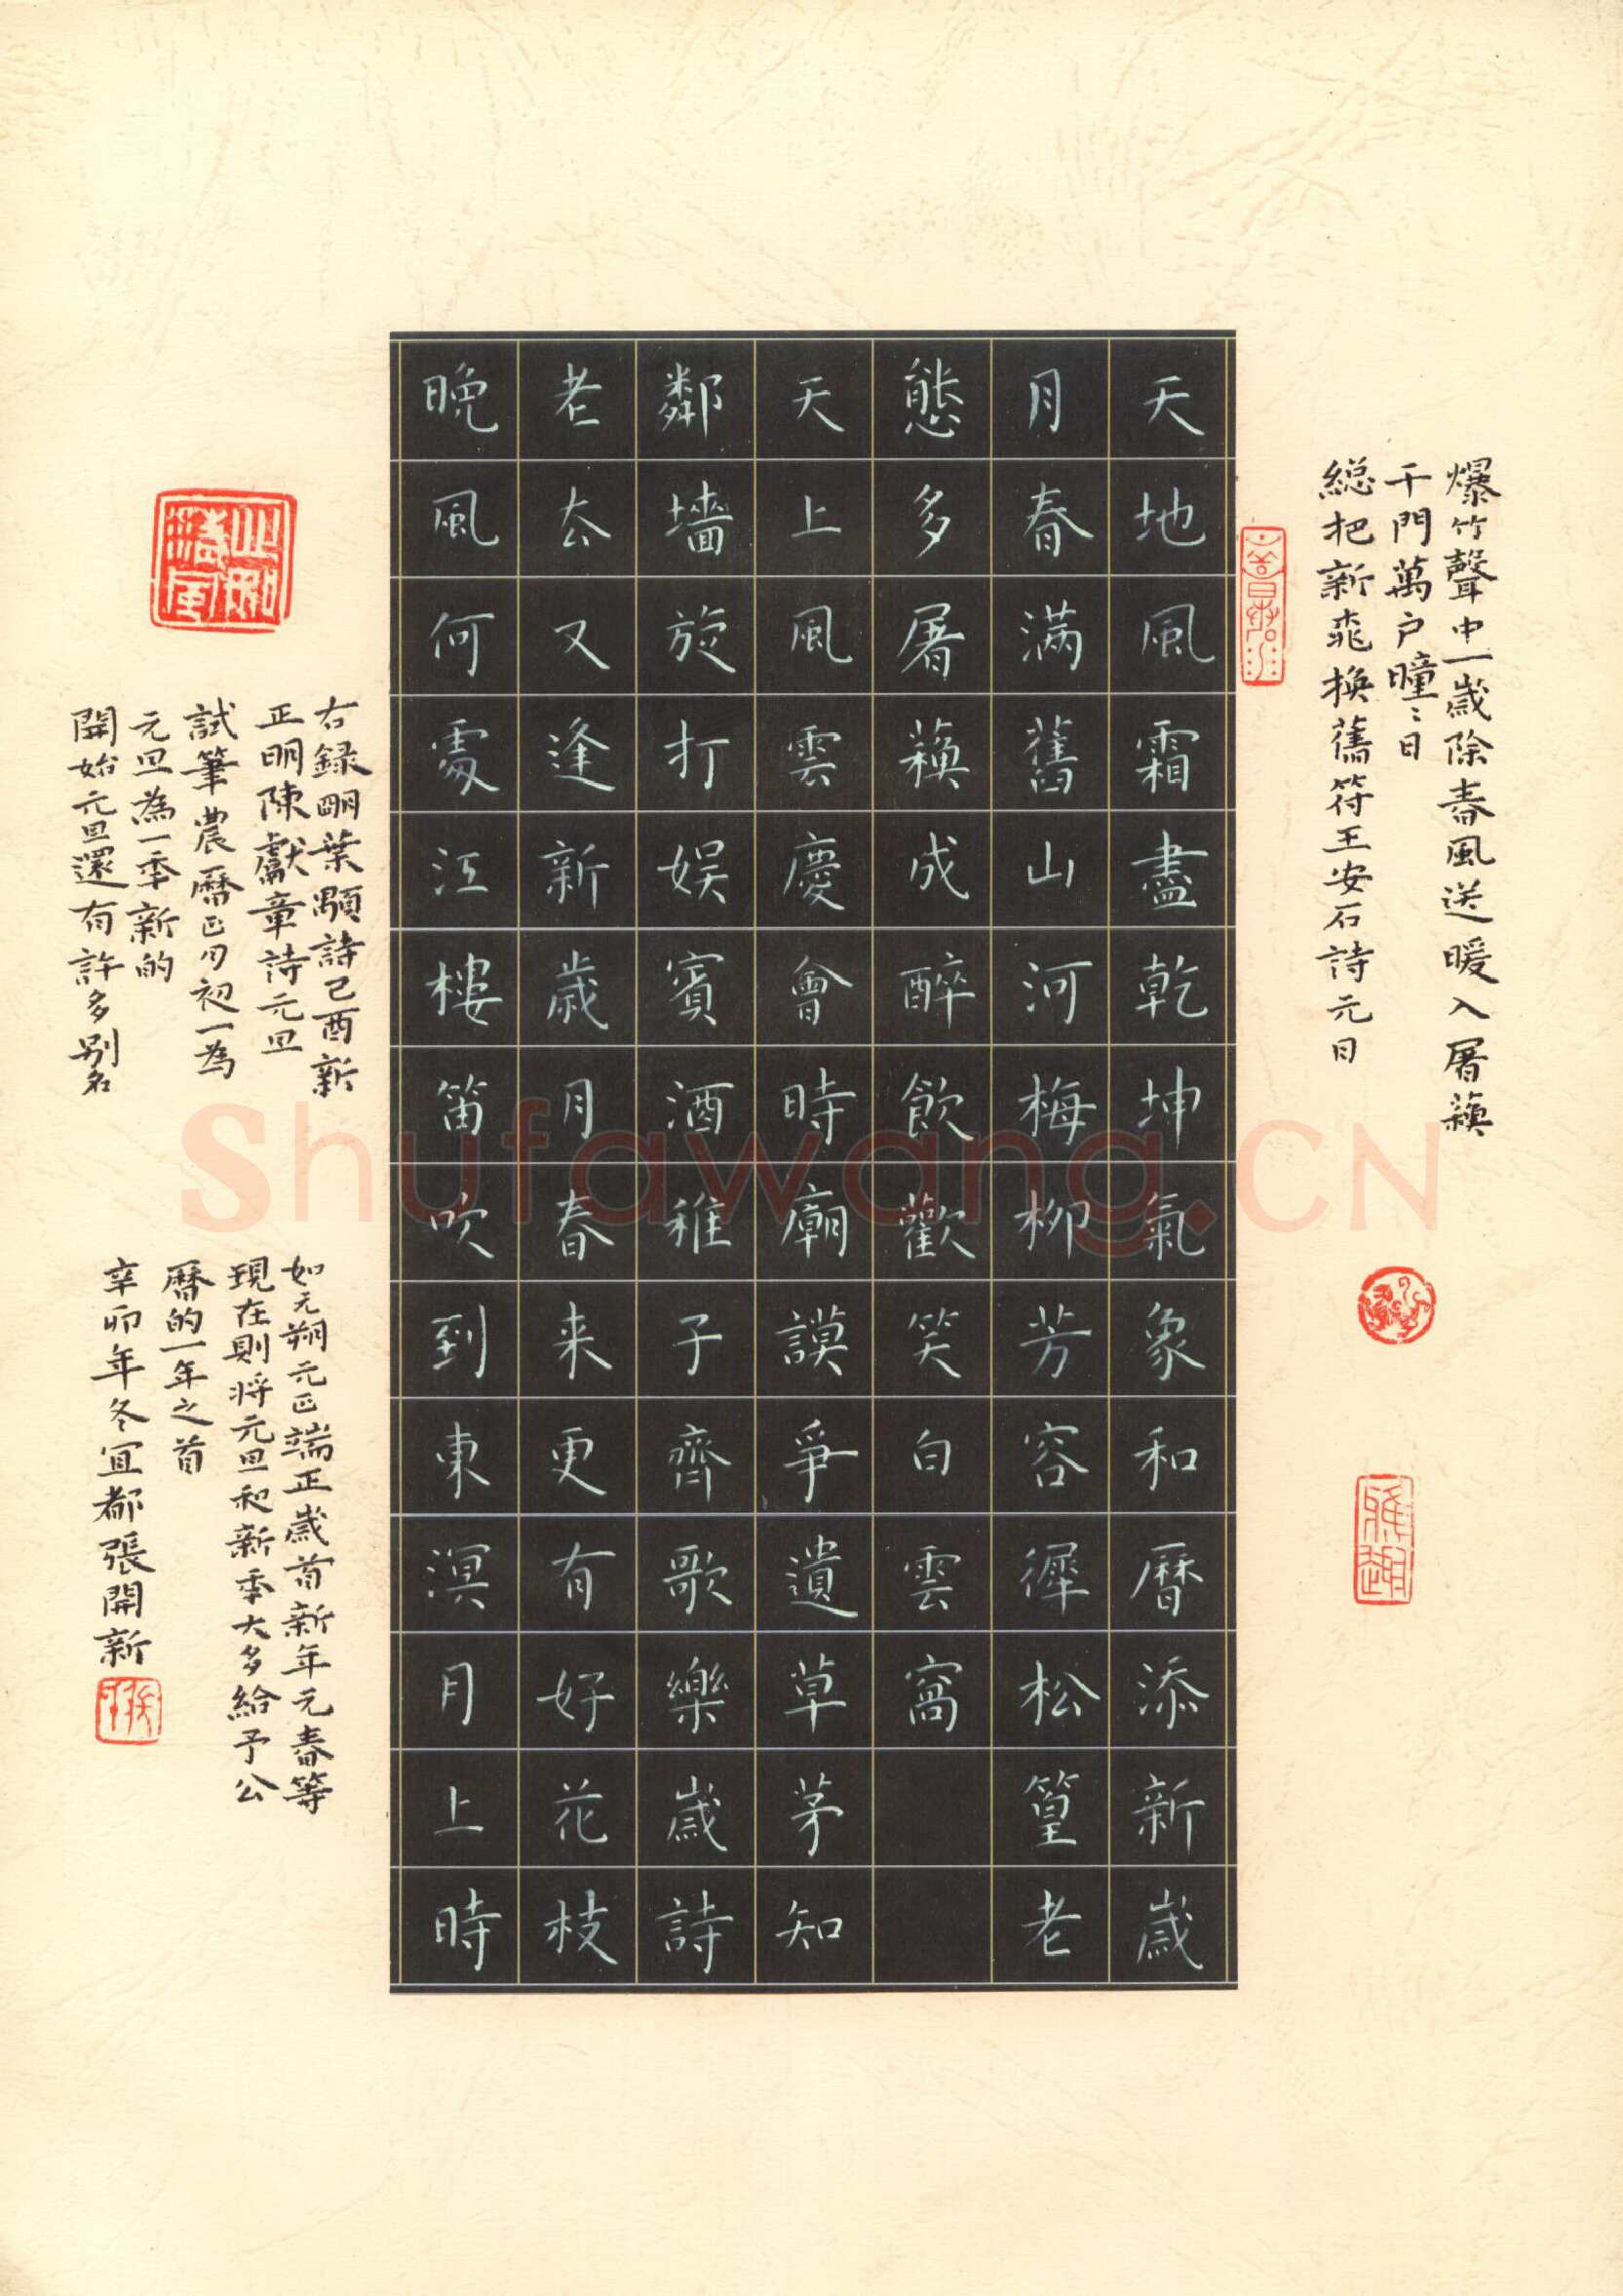 爆竹聲中一歲除春風送暖入屠蘓
千門萬户曈〻日
總把新桃換舊符王安石詩元日
天地風霜盡乾坤氣象和曆添新歲
月春滿舊山河梅柳芳容穉松篁老
態多屠蘓成醉飲歡笑白雲窩
天上風雲慶會時廟謨爭遺草茅知
鄰墻旋打娱賓酒稚子齊歌樂歲詩
老去又逢新歲月春来更有好花枝
晚風何處江樓笛吹到東溟月上時
右録明葉顒詩己酉新
正明陳獻章詩元旦
試筆農曆正月初一為
元旦為一季新的
開始元旦還有許多别名
如元朔元正端正歲首新年元春等
現在則将元旦和新季大多給予公
曆的一年之首
辛卯年冬宜都張開新
Shufawang.CN